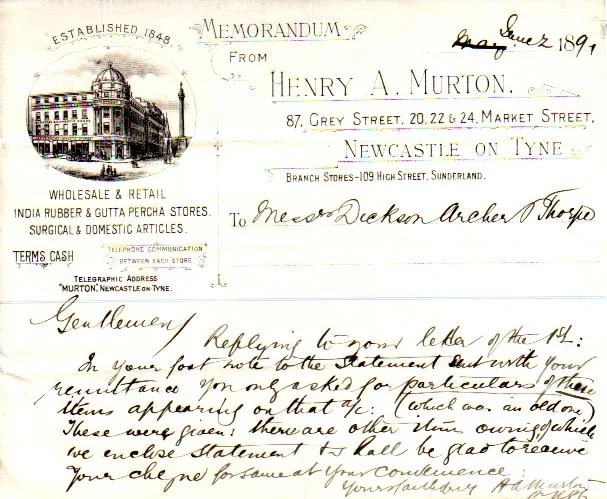 ESTABLISHED 1848.
MEMORANDUM
FROM
May June 2 1891
HENRY A. MURTON,
87, GREY STREET, 20, 22 & 24, MARKET STREET,
NEWCASTLE ON TYNE
BRANCH STORES-109 HIGH STREET, SUNDERLAND.
WHOLESALE & RETAIL
INDIA RUBBER & GUTTA PERCHA STORES.
SURGICAL & DOMESTIC ARTICLES.
TERMS CASH
TELEPHONE COMMUNICATION
BETWEEN EACH STORE
TELEGRAPHIC ADDRESS
"MURTON", NEWCASTLE-ON-TYNE.
To Messrs Dickson Archer & Thorpe
Gentlemen
Replying to your letter of the 1st:
In your foot note to the Statement sent with your
remittance you only asked for particulars of these
Items appearing on that a/c: (which was an old one)
These were given: there are other Items owing of which
we enclose Statement & shall be glad to receive
your cheque for same at your convenience:
Yours faithfully H A Murton